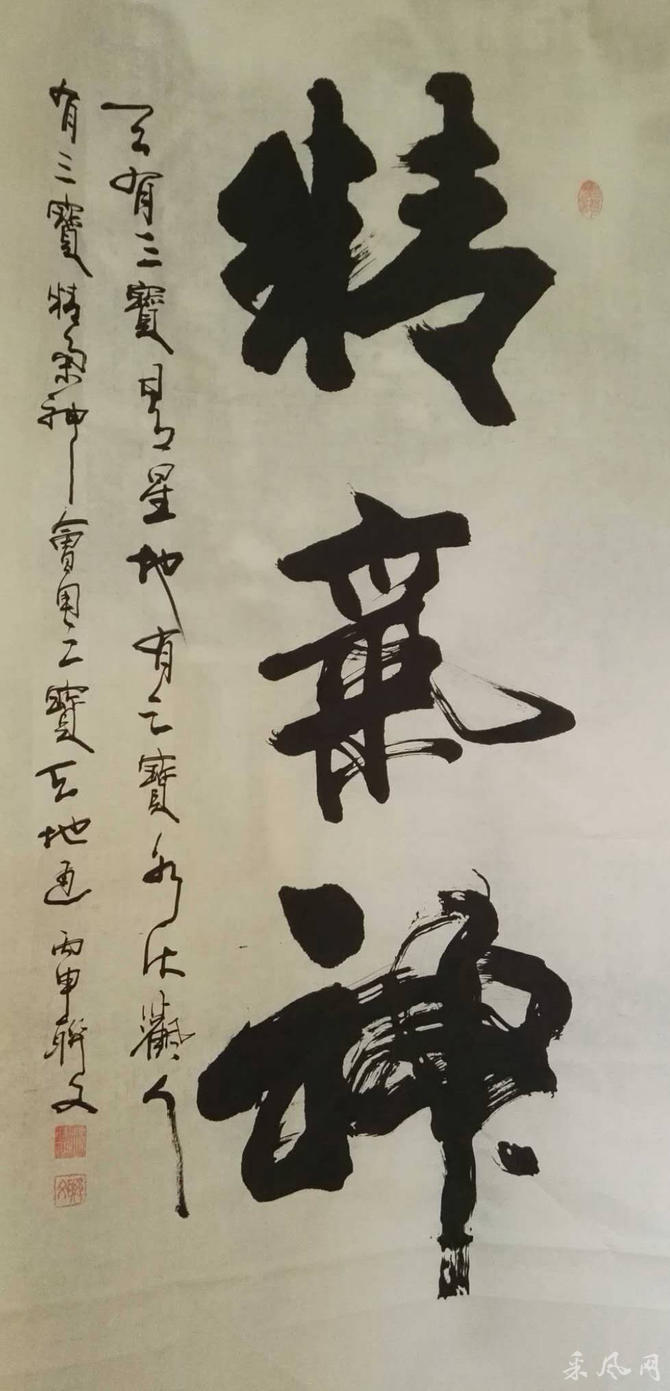 精氣神
天有三寶日月星地有三寶水火風人
有三寶精氣神會用三寶天地通丙申聯文
采风网